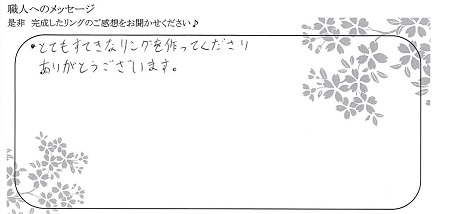 職人へのメッセージ
是非 完成したリングのご感想をお聞かせください♪
・とてもすてきなリングを作ってくださり
ありがとうございます。